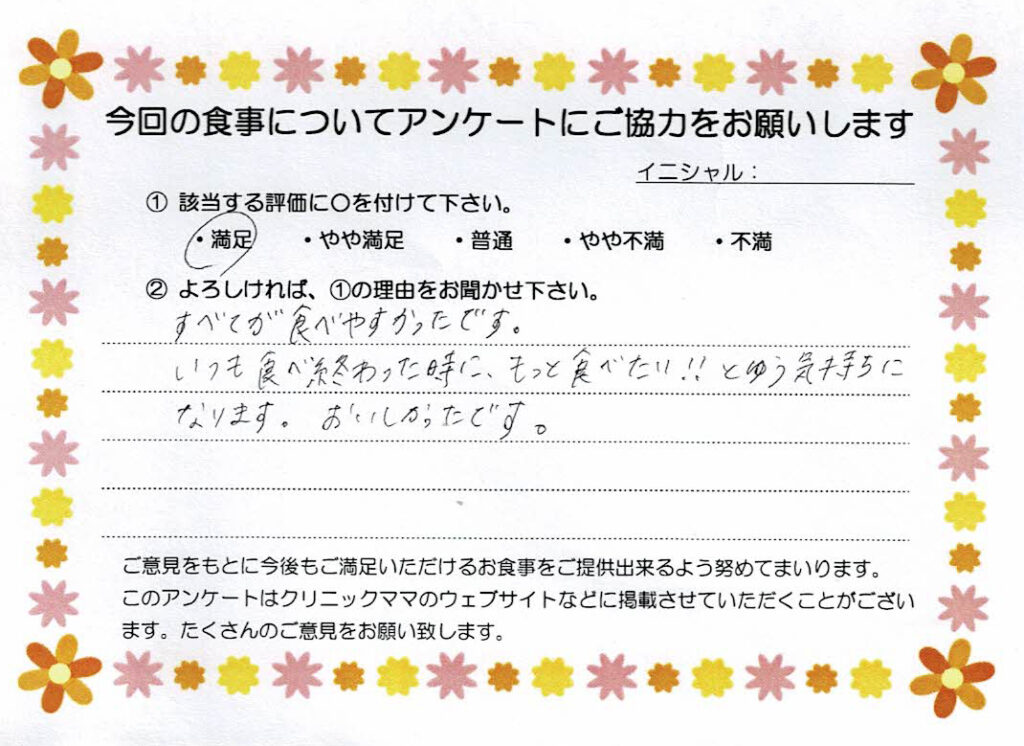 今回の食事についてアンケートにご協力をお願いします
イニシャル：
① 該当する評価に〇を付けて下さい。
・満足 ・やや満足 ・普通 ・やや不満 ・不満
② よろしければ、①の理由をお聞かせ下さい。
すべてが食べやすかったです。
いつも食べ終わった時に、もっと食べたい!!とゆう気持ちに
なります。おいしかったです。
ご意見をもとに今後もご満足いただけるお食事をご提供出来るよう努めてまいります。
このアンケートはクリニックママのウェブサイトなどに掲載させていただくことがござい
ます。たくさんのご意見をお願い致します。